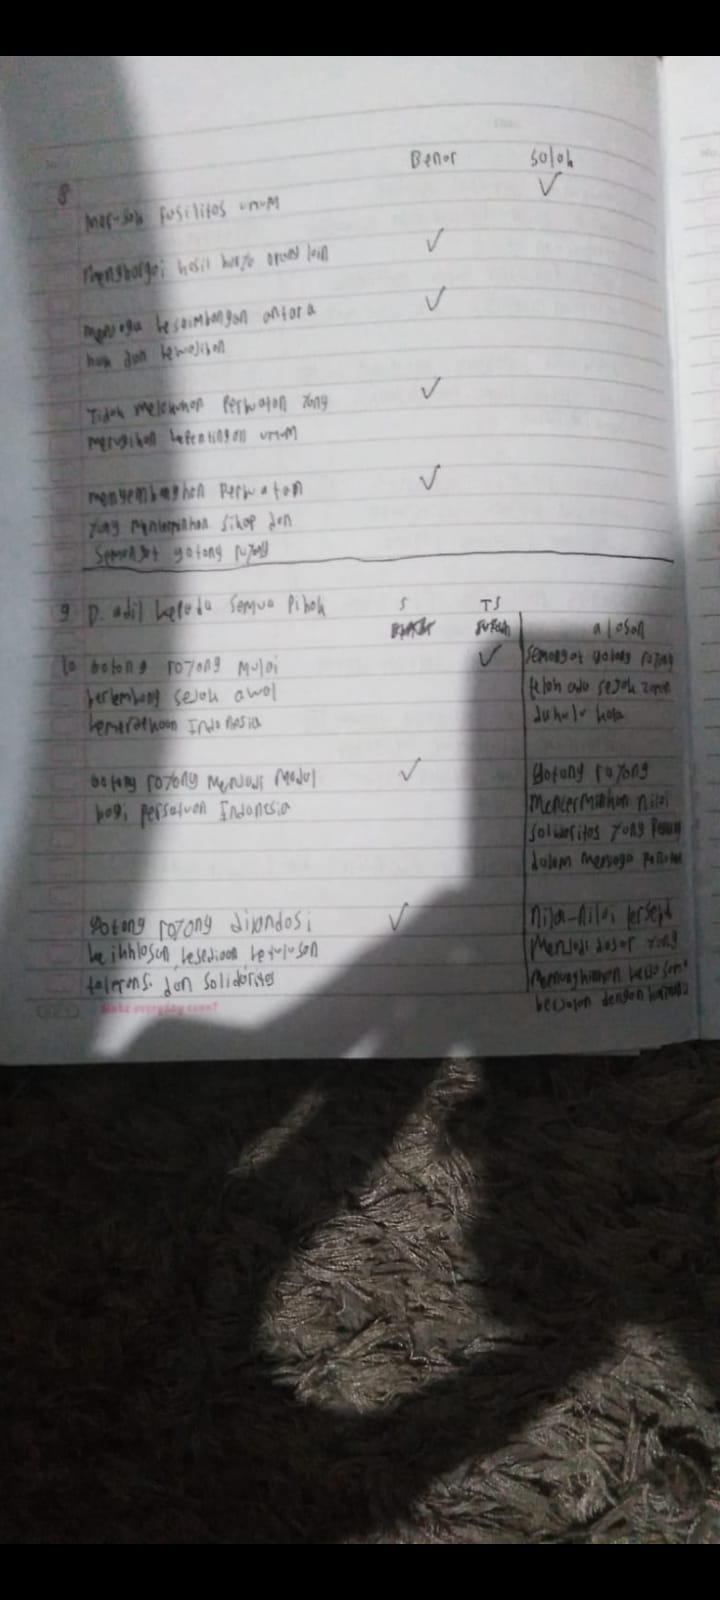 Benar Salah
8 Merusak fasilitas umum
Menghargai hasil karya orang lain
menjaga keseimbangan antara
hak dan kewajiban
Tidak melakukan Perbuatan yang
merugikan kepentingan umum
mengembangkan Perbuatan
yang mencerminkan sikap dan
Semangat gotong royong
9 D. adil kepada semua Pihak
S TS
alasan
10 Gotong royong mulai
berkembang sejak awal
kemerdekaan Indonesia
Semangat gotong royong
telah ada sejak zaman
dahulu kala
Gotong royong menjadi modal
bagi persatuan Indonesia
Gotong royong
mencerminkan nilai
solidaritas yang
dalam menjaga
Gotong royong dilandasi
keikhlasan, kesediaan ketulusan
toleransi dan solidaritas
Nilai-nilai
Menjadi dasar yang
Memungkinkan
berjalan dengan
Make everyday count